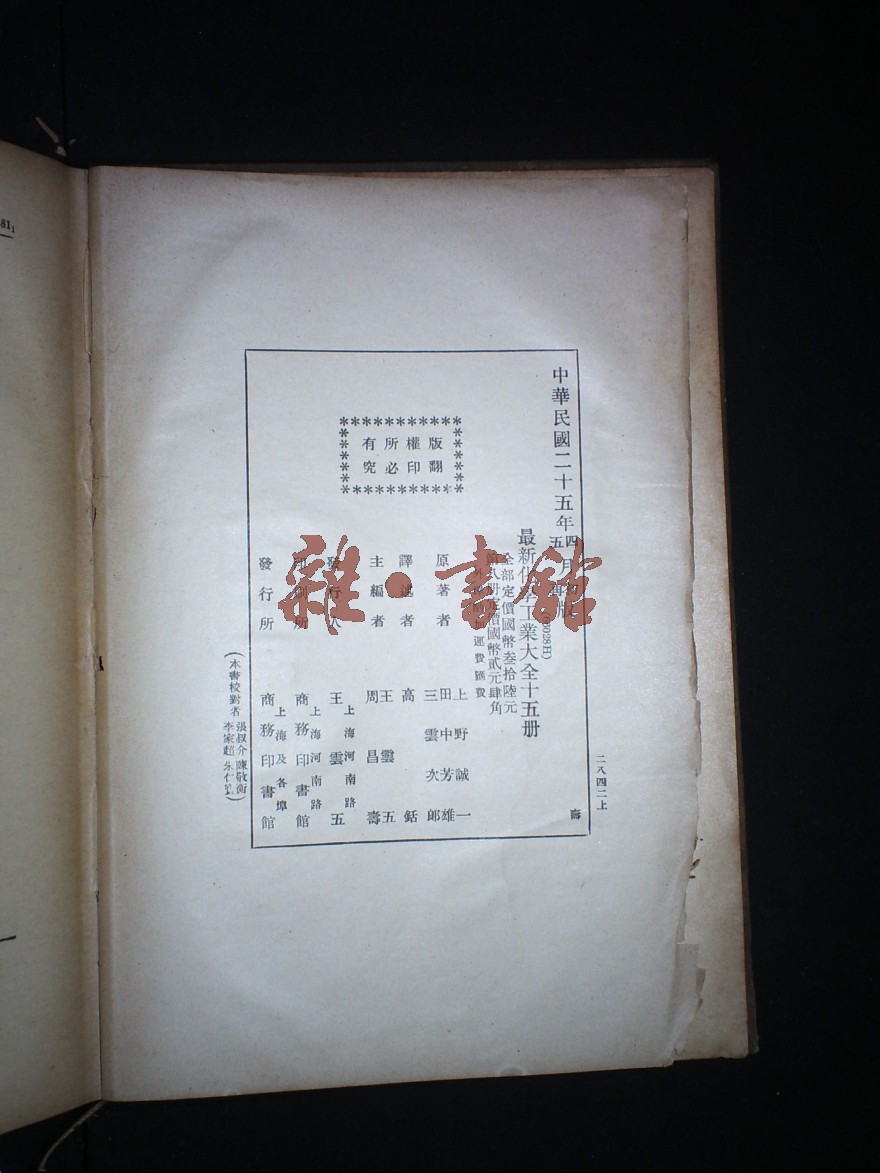 中華民國二十五年四月初版
五 再版
最新化學工業大全十五册
(60028H)
全部定價國幣叁拾陸元
第 册定價國幣貳元肆角
外埠酌加運費匯費
版權所有
翻印必究
原著者 上野誠一
田中芳雄
三雲次郎
譯述者 高銛
主編者 王雲五
周昌壽
發行人 王雲五
上海河南路
印刷所 商務印書館
上海河南路
發行所 商務印書館
上海及各埠
(本書校對者 張叔介 陳敬衡
李家超 朱仁寶)
二八四二上
壽
雜·書館